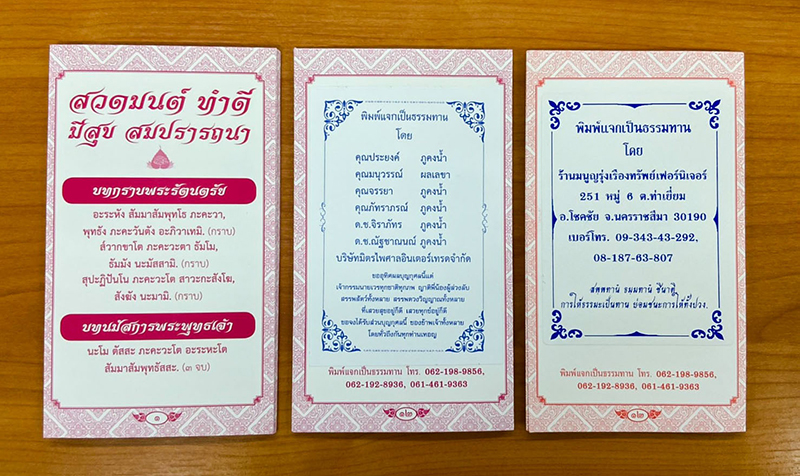 สวดมนต์ ทำดี
มีสุข สมปรารถนา
บทกราบพระรัตนตรัย
อะระหัง สัมมาสัมพุทโธ ภะคะวา,
พุทธัง ภะคะวันตัง อะภิวาเทมิ. (กราบ)
ส์วากขาโต ภะคะวะตา ธัมโม,
ธัมมัง นะมัสสามิ. (กราบ)
สุปะฏิปันโน ภะคะวะโต สาวะกะสังโฆ,
สังฆัง นะมามิ. (กราบ)
บทนมัสการพระพุทธเจ้า
นะโม ตัสสะ ภะคะวะโต อะระหะโต
สัมมาสัมพุทธัสสะ. (๓ จบ)
๑
พิมพ์แจกเป็นธรรมทาน
โดย
คุณประยงค์ ภูคงน้ำ
คุณมนูวรรณ์ ผลเลขา
คุณจรรยา ภูคงน้ำ
คุณภัทราภรณ์ ภูคงน้ำ
ด.ช.จิราภัทร ภูคงน้ำ
ด.ช.ณัฐชาณนณ์ ภูคงน้ำ
บริษัทมิตรไพศาลอินเตอร์เทรดจำกัด
ขออุทิศผลบุญกุศลนี้แด่
เจ้ากรรมนายเวรทุกชาติทุกภพ ญาติพี่น้องผู้ล่วงลับ
สรรพสัตว์ทั้งหลาย สรรพดวงวิญญาณทั้งหลาย
ที่เสวยสุขอยู่ก็ดี เสวยทุกข์อยู่ก็ดี
ขอจงได้รับส่วนบุญกุศลนี้ ของข้าพเจ้าทั้งหลาย
โดยทั่วถึงกันทุกท่านเทอญ
พิมพ์แจกเป็นธรรมทาน โทร. 062-198-9856,
062-192-8936, 061-461-9363
๑๒
พิมพ์แจกเป็นธรรมทาน
โดย
ร้านมนูญรุ่งเรืองทรัพย์เฟอร์นิเจอร์
251 หมู่ 6 ต.ท่าเยี่ยม
อ.โชคชัย จ.นครราชสีมา 30190
เบอร์โทร. 09-343-43-292,
08-187-63-807
สพฺพทานํ ธมฺมทานํ ชินาติ
การให้ธรรมะเป็นทาน ย่อมชนะการให้ทั้งปวง.
พิมพ์แจกเป็นธรรมทาน โทร. 062-198-9856,
062-192-8936, 061-461-9363
๑๒